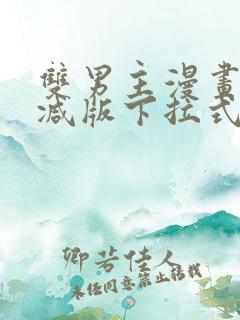 雙男主漫畫
減版下拉式
卿若佳人
未经同意禁止转载